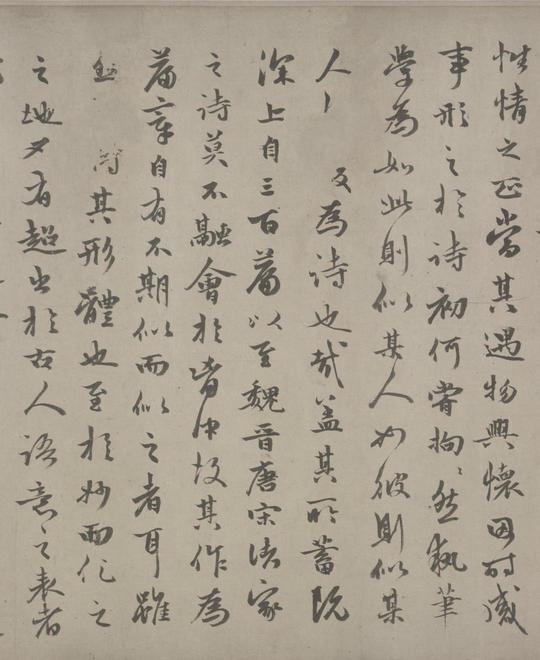 性情之正當其遇物興懷因時感
事形之於詩初何嘗拘〻然執筆
學為如此則似某人如彼則似某
人 為詩也哉蓋其所蓄既
深上自三百篇以至魏晉唐宋諸家
之詩莫不融會於胷中故其作為
篇章自有不期似而似之者耳雖
其形體也至於妙而化之
之地又有超出於古人語意之表者